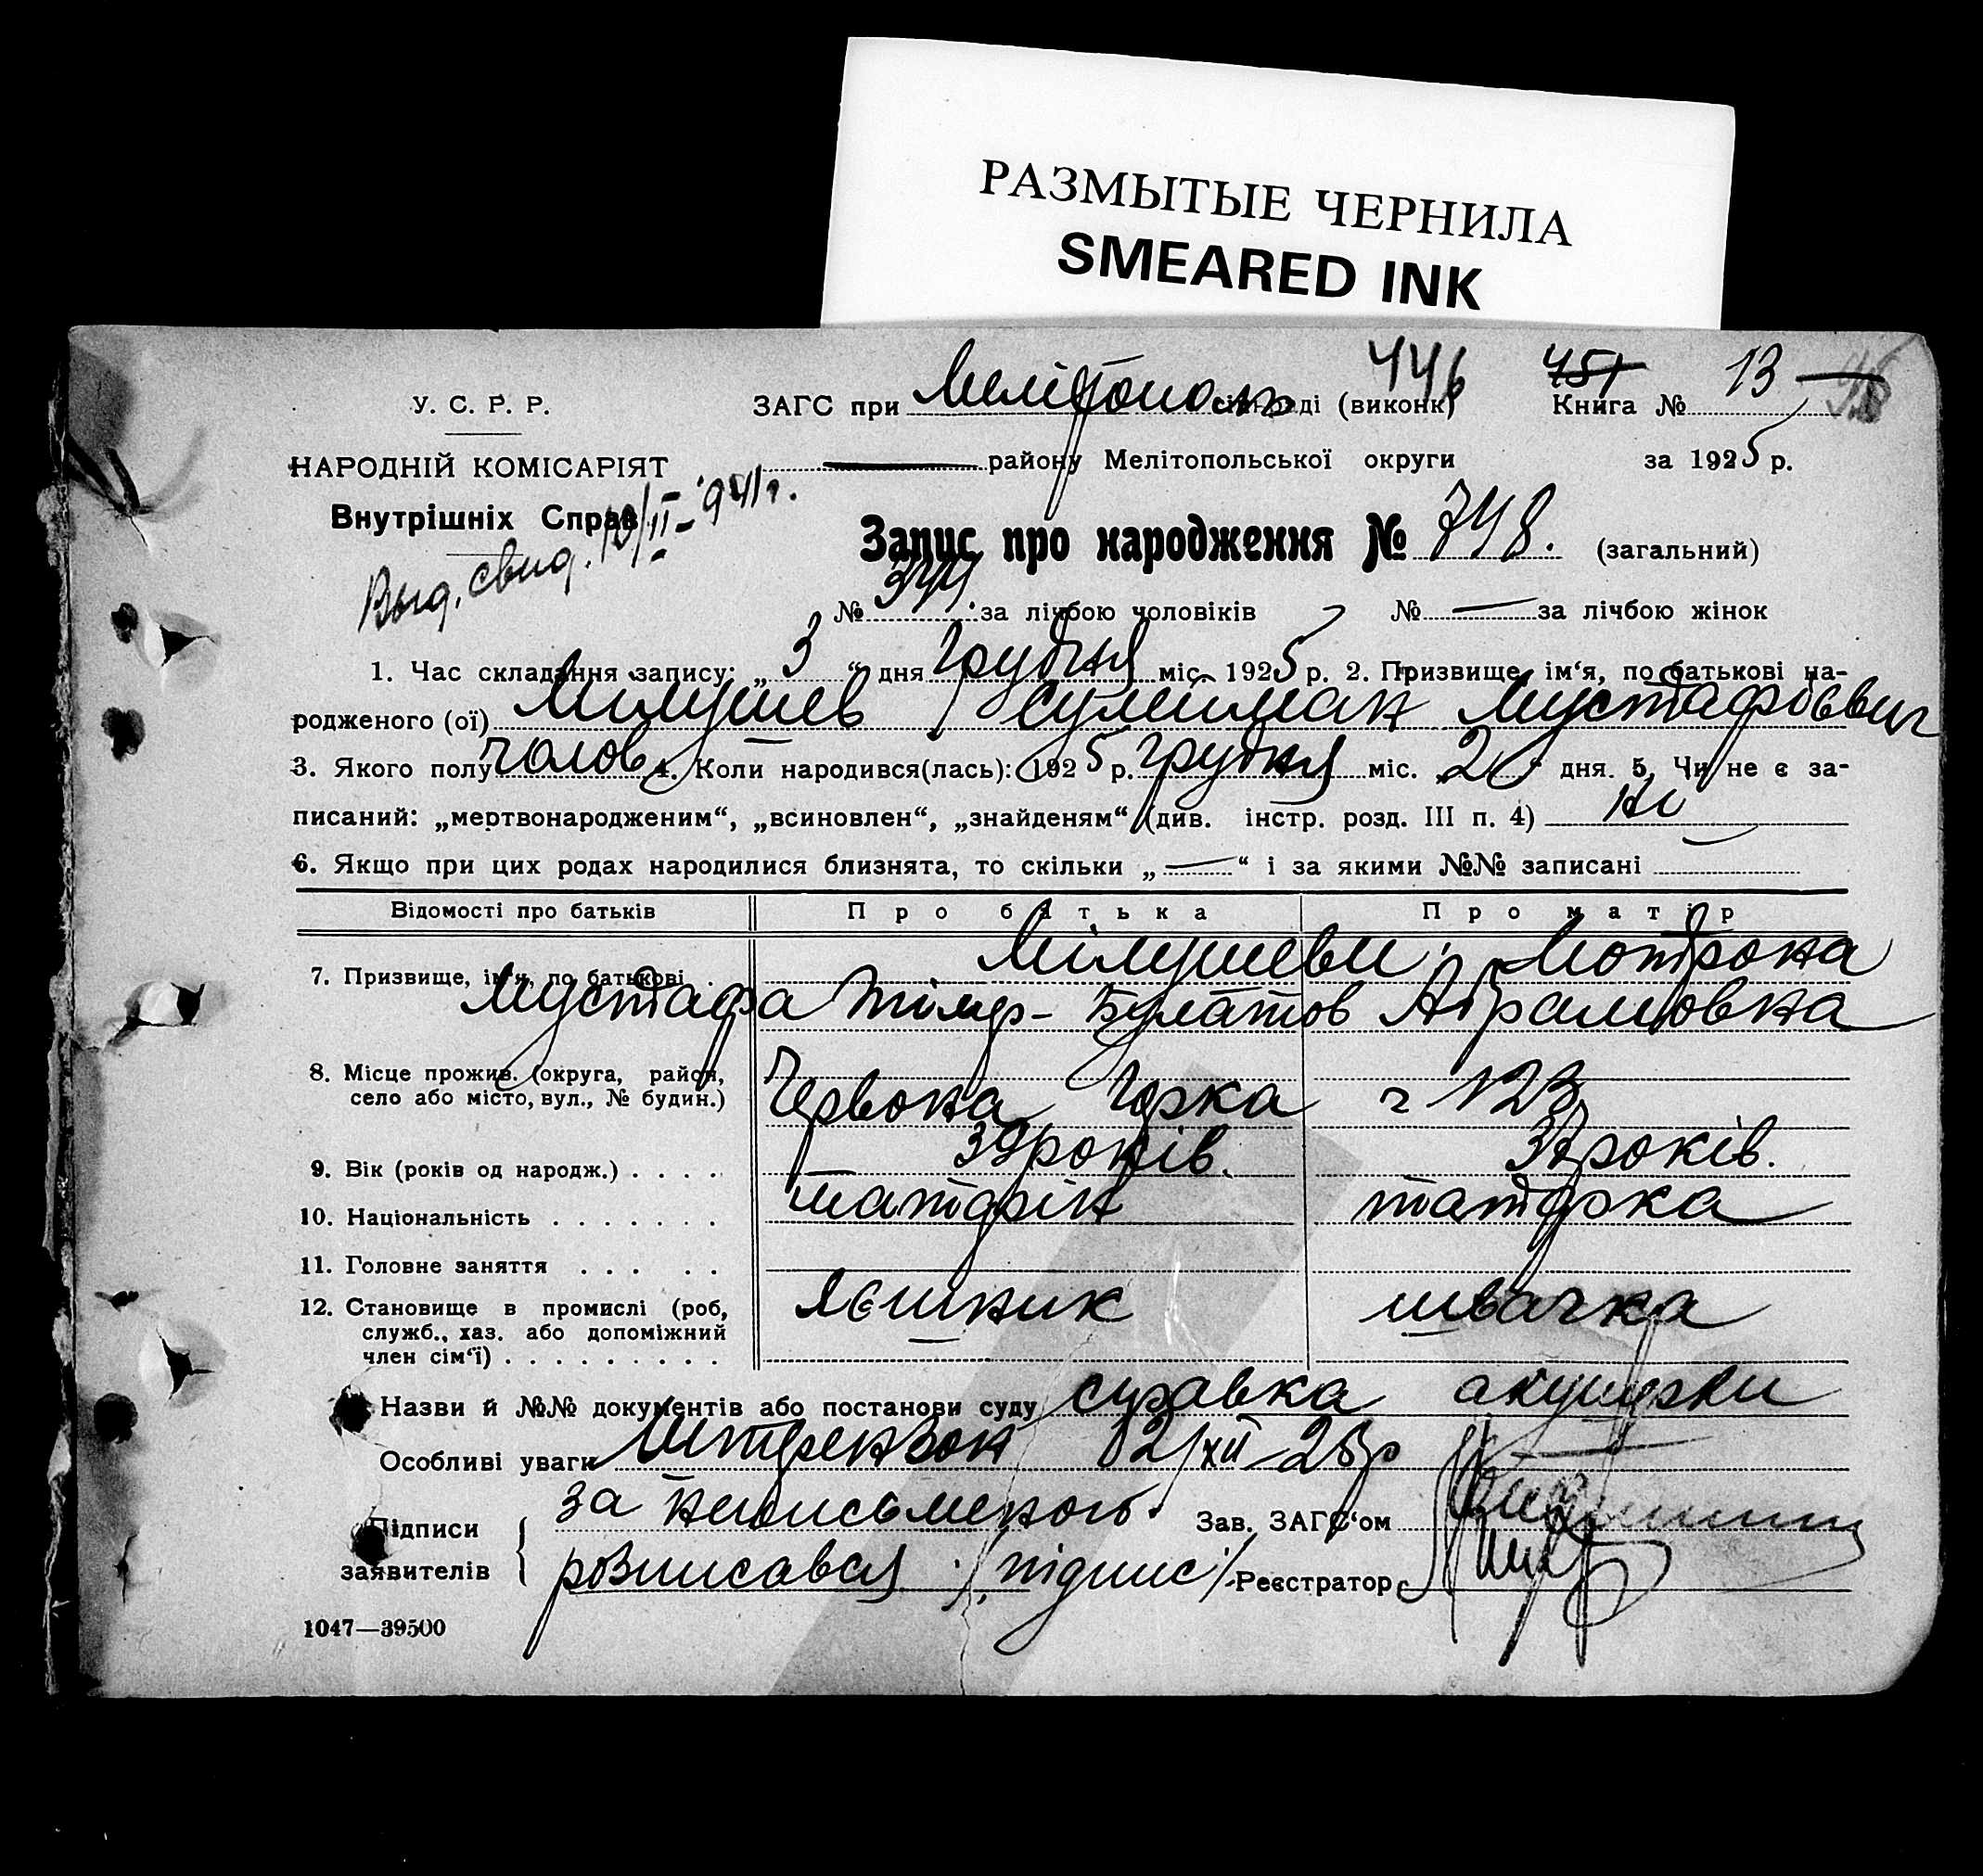 РАЗМЫТЫЕ ЧЕРНИЛА
SMEARED INK
446 451 13
У. С. Р. Р. ЗАГС при Мелітополь раді (виконк) Книга №
НАРОДНІЙ КОМІСАРІЯТ району Мелітопольської округи за 1925 р.
Внутрішніх Справ
Выд. свид. 10/II-941г.
Запис про народження № 748. (загальний)
№ 344. за лічбою чоловіків № — за лічбою жінок
1. Час складання запису: „3“ дня Грудня міс. 1925 р. 2. Призвище, ім‘я, по батькові на-
родженого (ої) Мілушев Сулейман Мустафієвич
3. Якого полу чолов 4. Коли народився(лась): 1925 р. грудня міс. „2“ дня. 5. Чи не є за-
писаний: „мертвонародженим“, „всиновлен“, „знайденям“ (див. інстр. розд. III п. 4) ні
6. Якщо при цих родах народилися близнята, то скільки „—“ і за якими №№ записані
Відомості про батьків Про батька Про матір
7. Призвище, ім‘я, по батькові Мілушеви Мотрона
Мустафа Булатов Абрамовна
8. Місце прожив. (округа, район,
село або місто, вул., № будин.) Червона Горка ч 123
9. Вік (років од народж.) . . . . 39 років. років.
10. Національність . . . . . . . татарін татарка
11. Головне заняття . . . . .
12. Становище в промислі (роб, швачка
служб., хаз. або допоміжний
член сім‘ї) . . . . . . . . .
Назви й №№ документів або постанови суду справка акушерки
Особливі уваги 2/XII-25р
Підписи за неписьменого Зав. ЗАГС‘ом
заявителів розписався /підпис/ Реєстратор
1047—39500